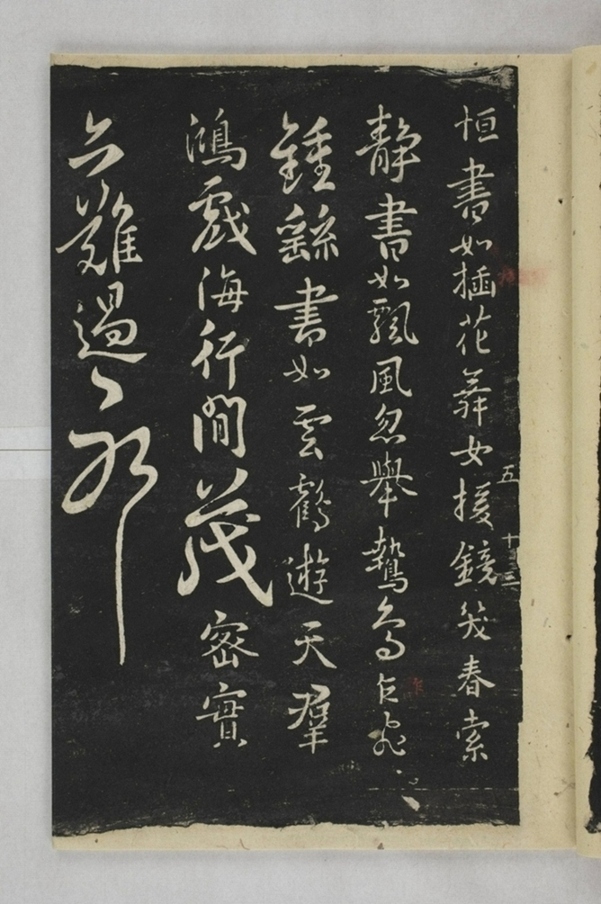 恒書如插花舞女援鏡笑春索
靜書如飄風忽舉鷙鳥乍飛
鍾繇書如雲鶴遊天羣
鴻戲海行間茂密實
亦難過耶
五
十三